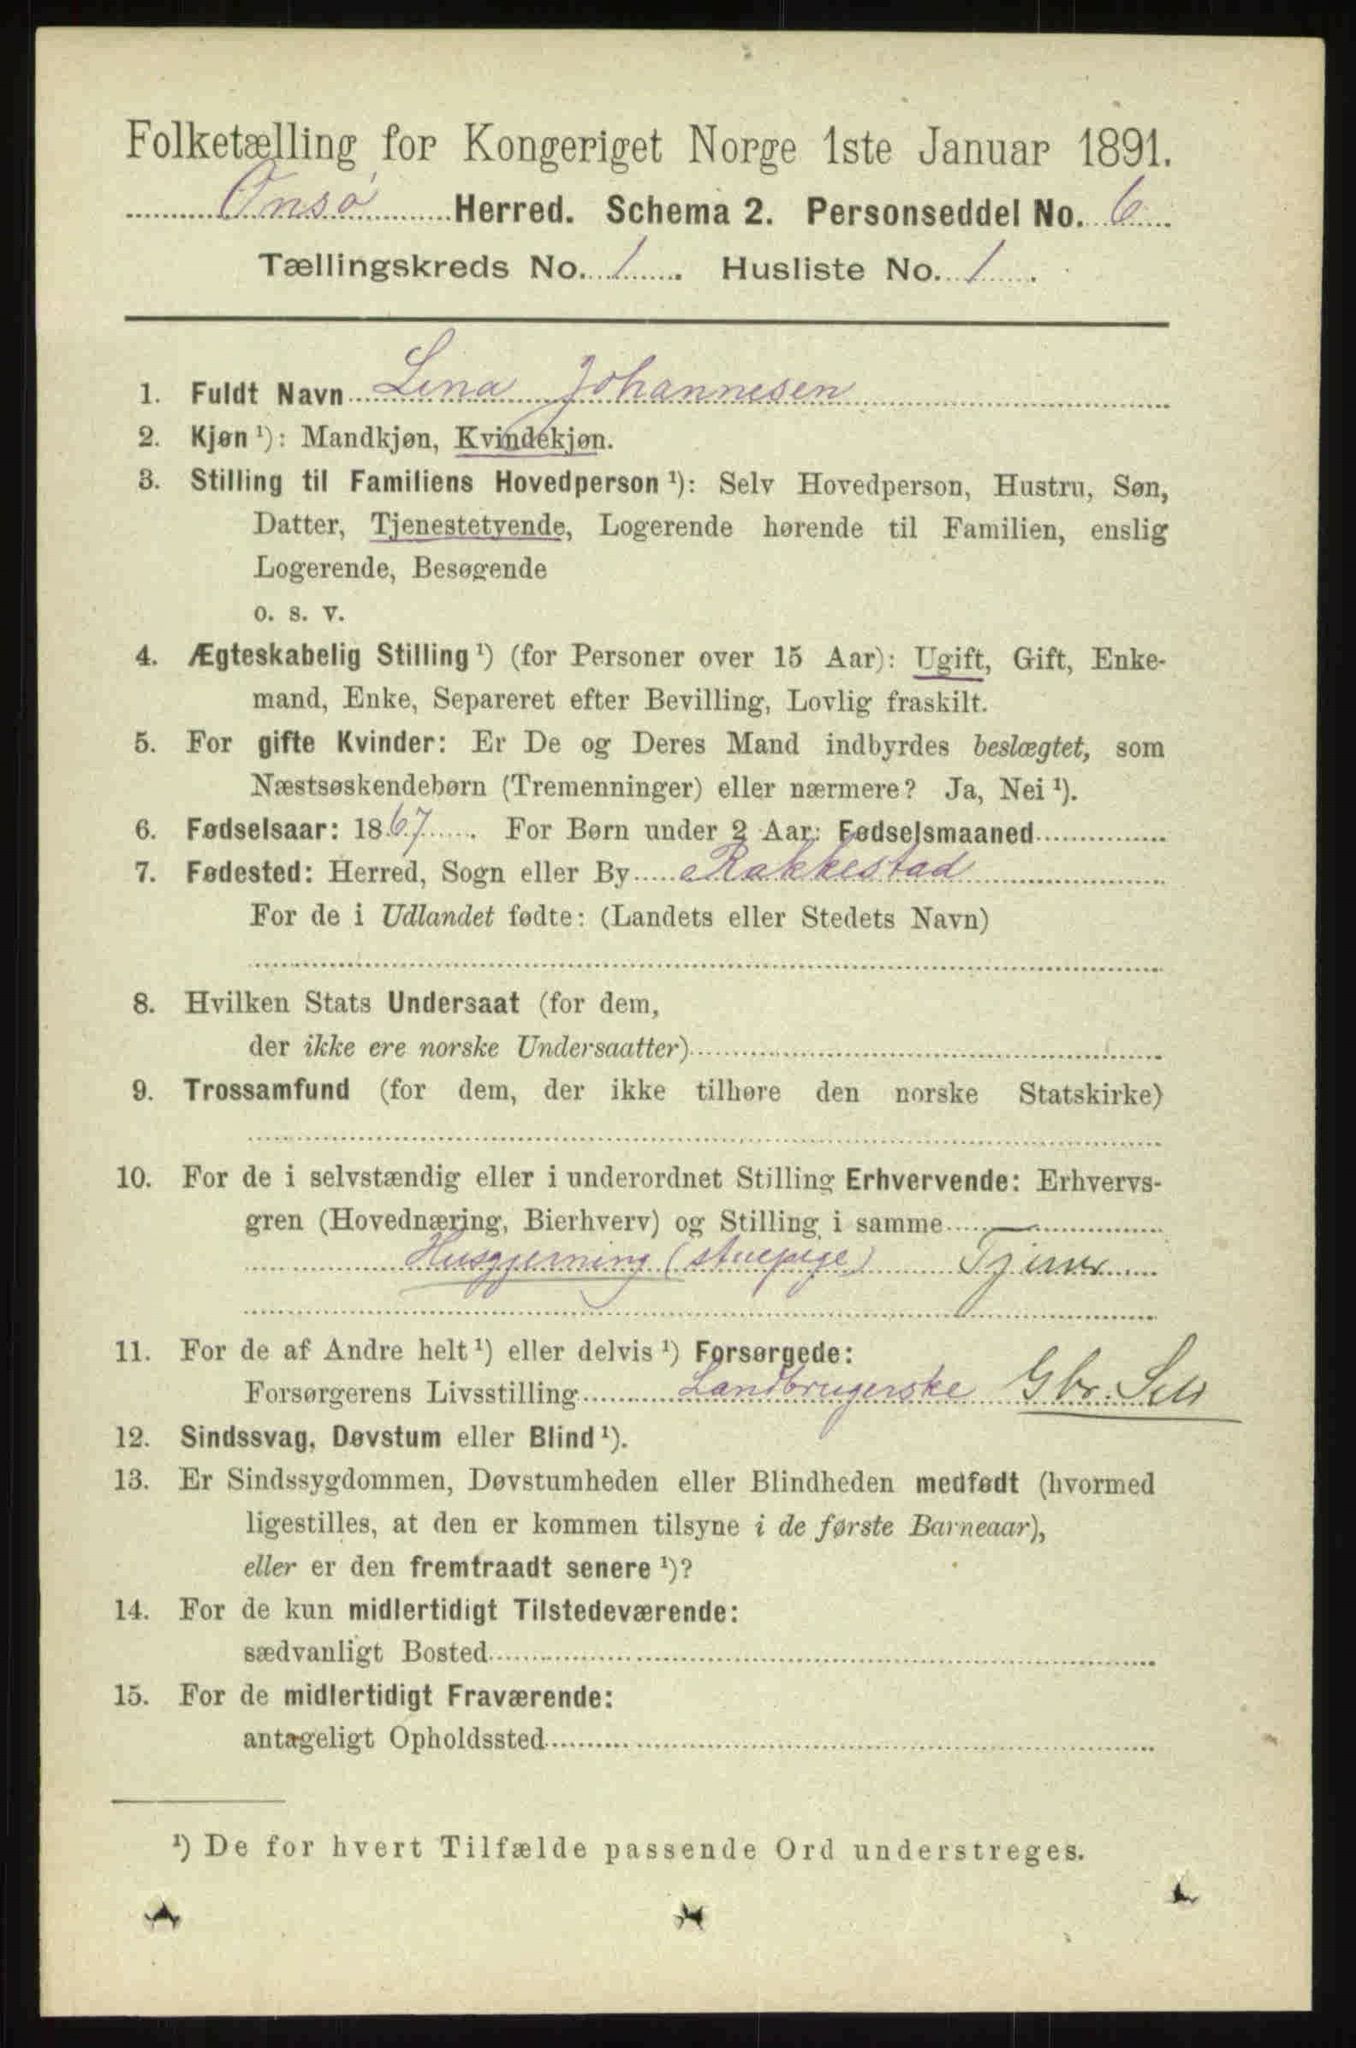 Folketælling for Kongeriget Norge 1ste Januar 1891.
Onsø Herred. Schema 2. Personseddel No. 6
Tællingskreds No. 1. Husliste No. 1.
1. Fuldt Navn Lina Johannesen
2. Kjøn ¹): Mandkjøn, Kvindekjøn.
3. Stilling til Familiens Hovedperson ¹): Selv Hovedperson, Hustru, Søn,
Datter, Tjenestetyende, Logerende hørende til Familien, enslig
Logerende, Besøgende
o. s. v.
4. Ægteskabelig Stilling ¹) (for Personer over 15 Aar): Ugift, Gift, Enke-
mand, Enke, Separeret efter Bevilling, Lovlig fraskilt.
5. For gifte Kvinder: Er De og Deres Mand indbyrdes beslægtet, som
Næstsøskendebørn (Tremenninger) eller nærmere? Ja, Nei ¹).
6. Fødselsaar: 1867. For Børn under 2 Aar: Fødselsmaaned
7. Fødested: Herred, Sogn eller By Rakkestad
For de i Udlandet fødte: (Landets eller Stedets Navn)
8. Hvilken Stats Undersaat (for dem,
der ikke ere norske Undersaatter)
9. Trossamfund (for dem, der ikke tilhøre den norske Statskirke)
10. For de i selvstændig eller i underordnet Stilling Erhvervende: Erhvervs-
gren (Hovednæring, Bierhverv) og Stilling i samme —
Husgjerning (stuepige)
11. For de af Andre helt ¹) eller delvis ¹) Forsørgede:
Forsørgerens Livsstilling Landbrugerske Gbr.
12. Sindssvag, Døvstum eller Blind ¹).
13. Er Sindssygdommen, Døvstumheden eller Blindheden medfødt (hvormed
ligestilles, at den er kommen tilsyne i de første Barneaar),
eller er den fremtraadt senere ¹)?
14. For de kun midlertidigt Tilstedeværende:
sædvanligt Bosted
15. For de midlertidigt Fraværende:
antageligt Opholdssted
¹) De for hvert Tilfælde passende Ord understreges.